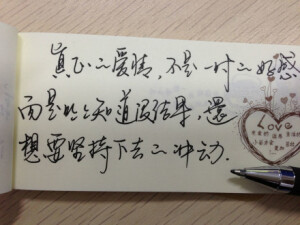 真正的爱情，不是一时的好感
而是明知道没结果，還
想要坚持下去的冲动.
Love